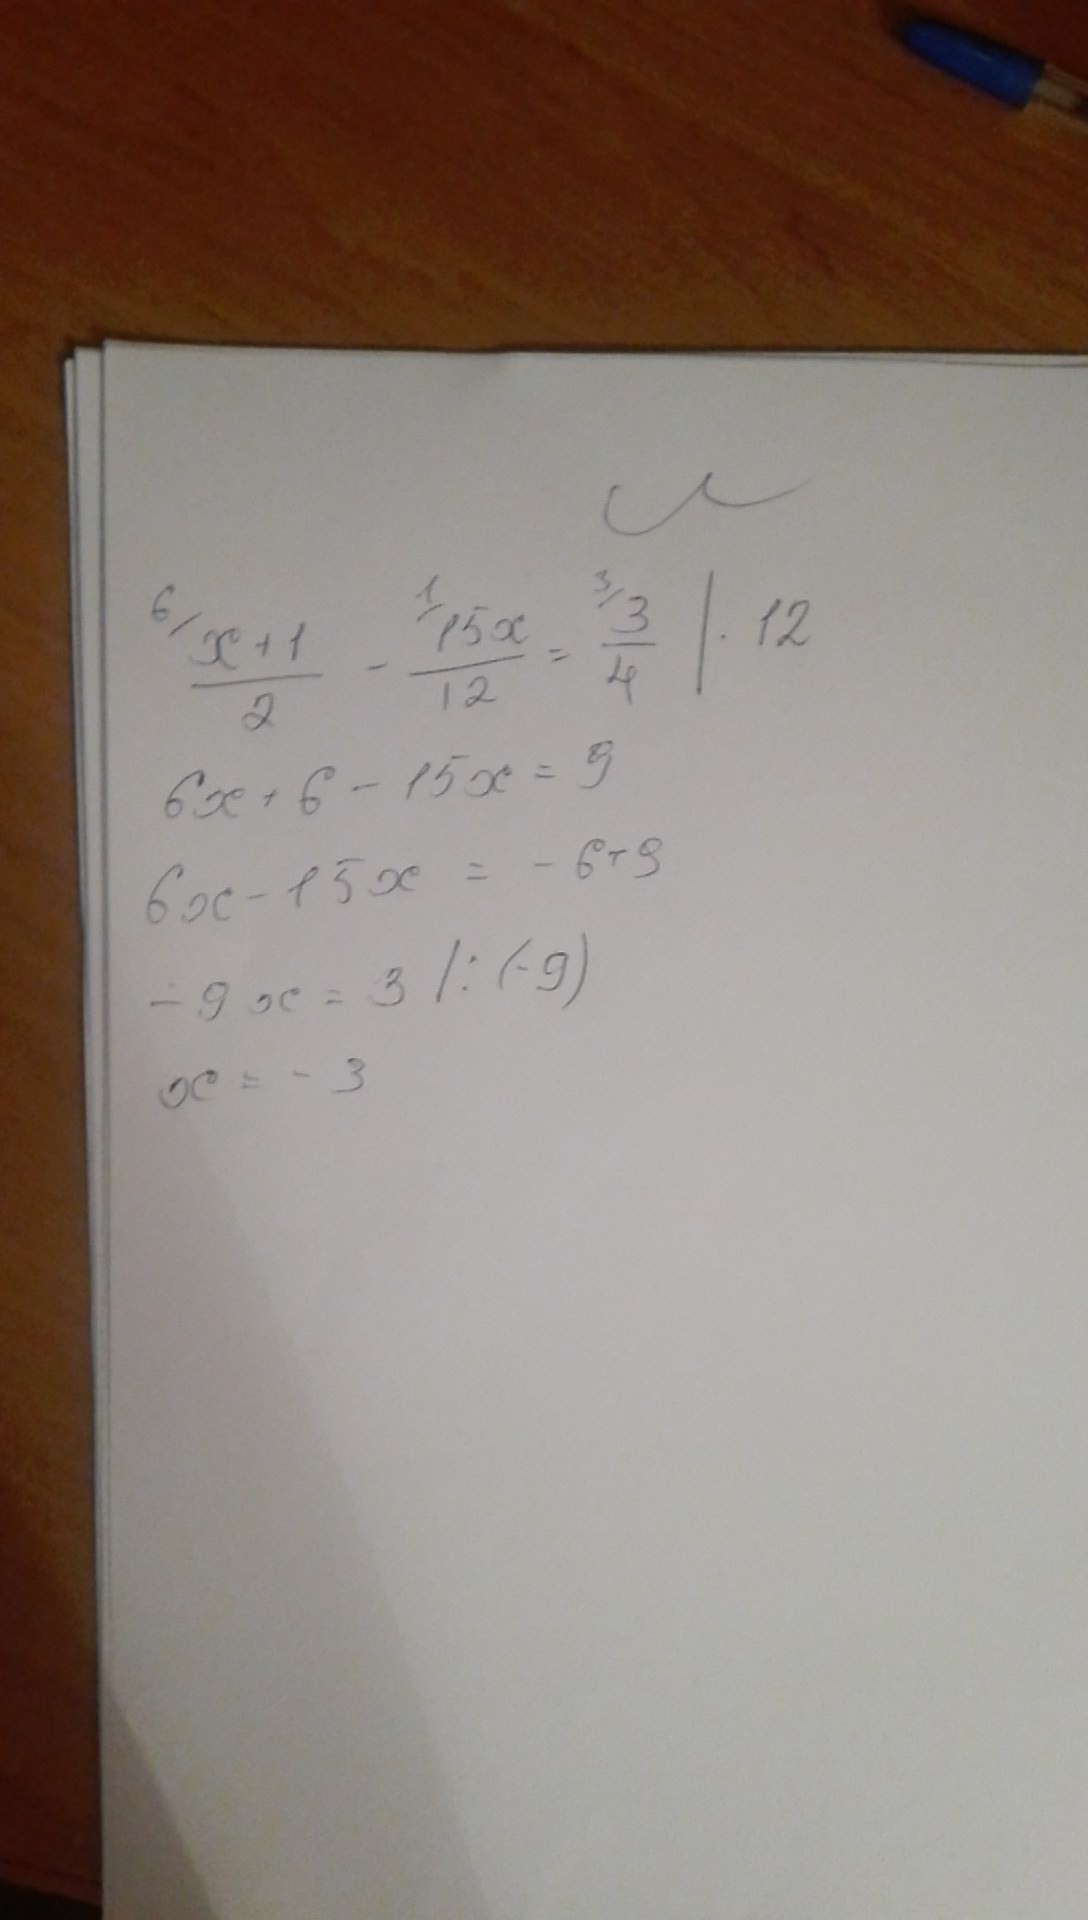 6/ x+1/2 - 1/ 15x/12 = 3/ 3/4 | · 12
6x+6-15x=9
6x-15x = -6+9
-9x=3 /:(-9)
x = -3